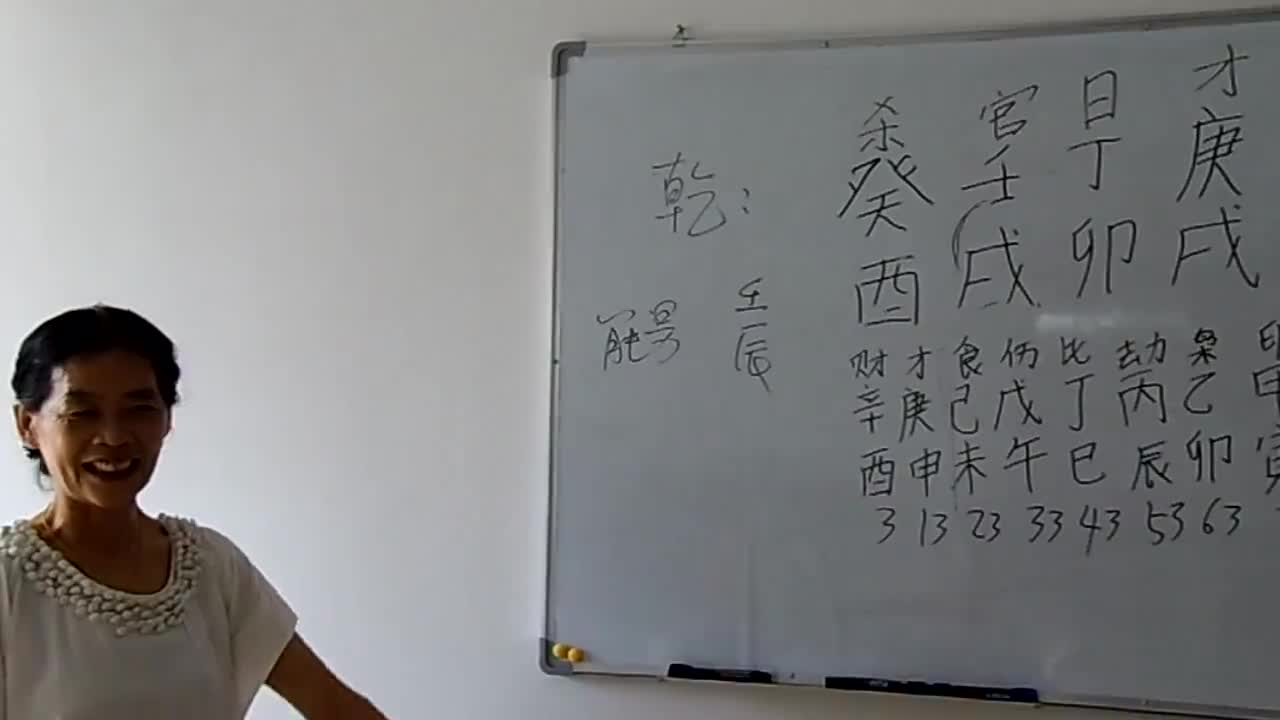 杀 官 日 才
乾: 癸 壬 丁 庚
酉 戌 卯 戌
壬
辰
财 才 食 伤 比 劫 枭 印
辛 庚 己 戊 丁 丙 乙 甲
酉 申 未 午 巳 辰 卯 寅
3 13 23 33 43 53 63